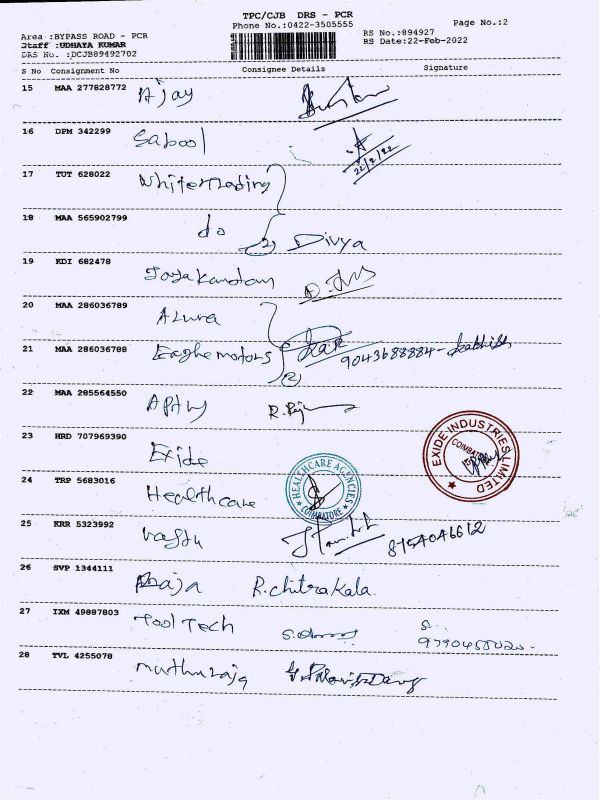 TPC/CJB DRS - PCR
Phone No.:0422-3505555
Page No.:2
Area :BYPASS ROAD - PCR
RS No.:894927
Staff :UDHAYA KUMAR
RS Date:22-Feb-2022
DRS No. :DCJB89492702
S No Consignment No Consignee Details Signature
15 MAA 277828772 Ajay
16 DPM 342299 Sabool
22/2/22
17 TUT 628022 White Trading
18 MAA 565902799 do (2) Divya
19 KDI 682478
20 MAA 286036789 Azura
21 MAA 286036788 motors 9043688884-
(2)
22 MAA 285564550
23 HRD 707969390 Exide
EXIDE INDUSTRIES LIMITED
24 TRP 5683016 Healthcare
HEALTHCARE AGENCIES
COIMBATORE
25 KRR 5323992 Vastu 8754046612
26 SVP 1344111 Raja R.chitrakala.
27 IXM 49887803 Tool Tech
28 TVL 4255078 muthuraja